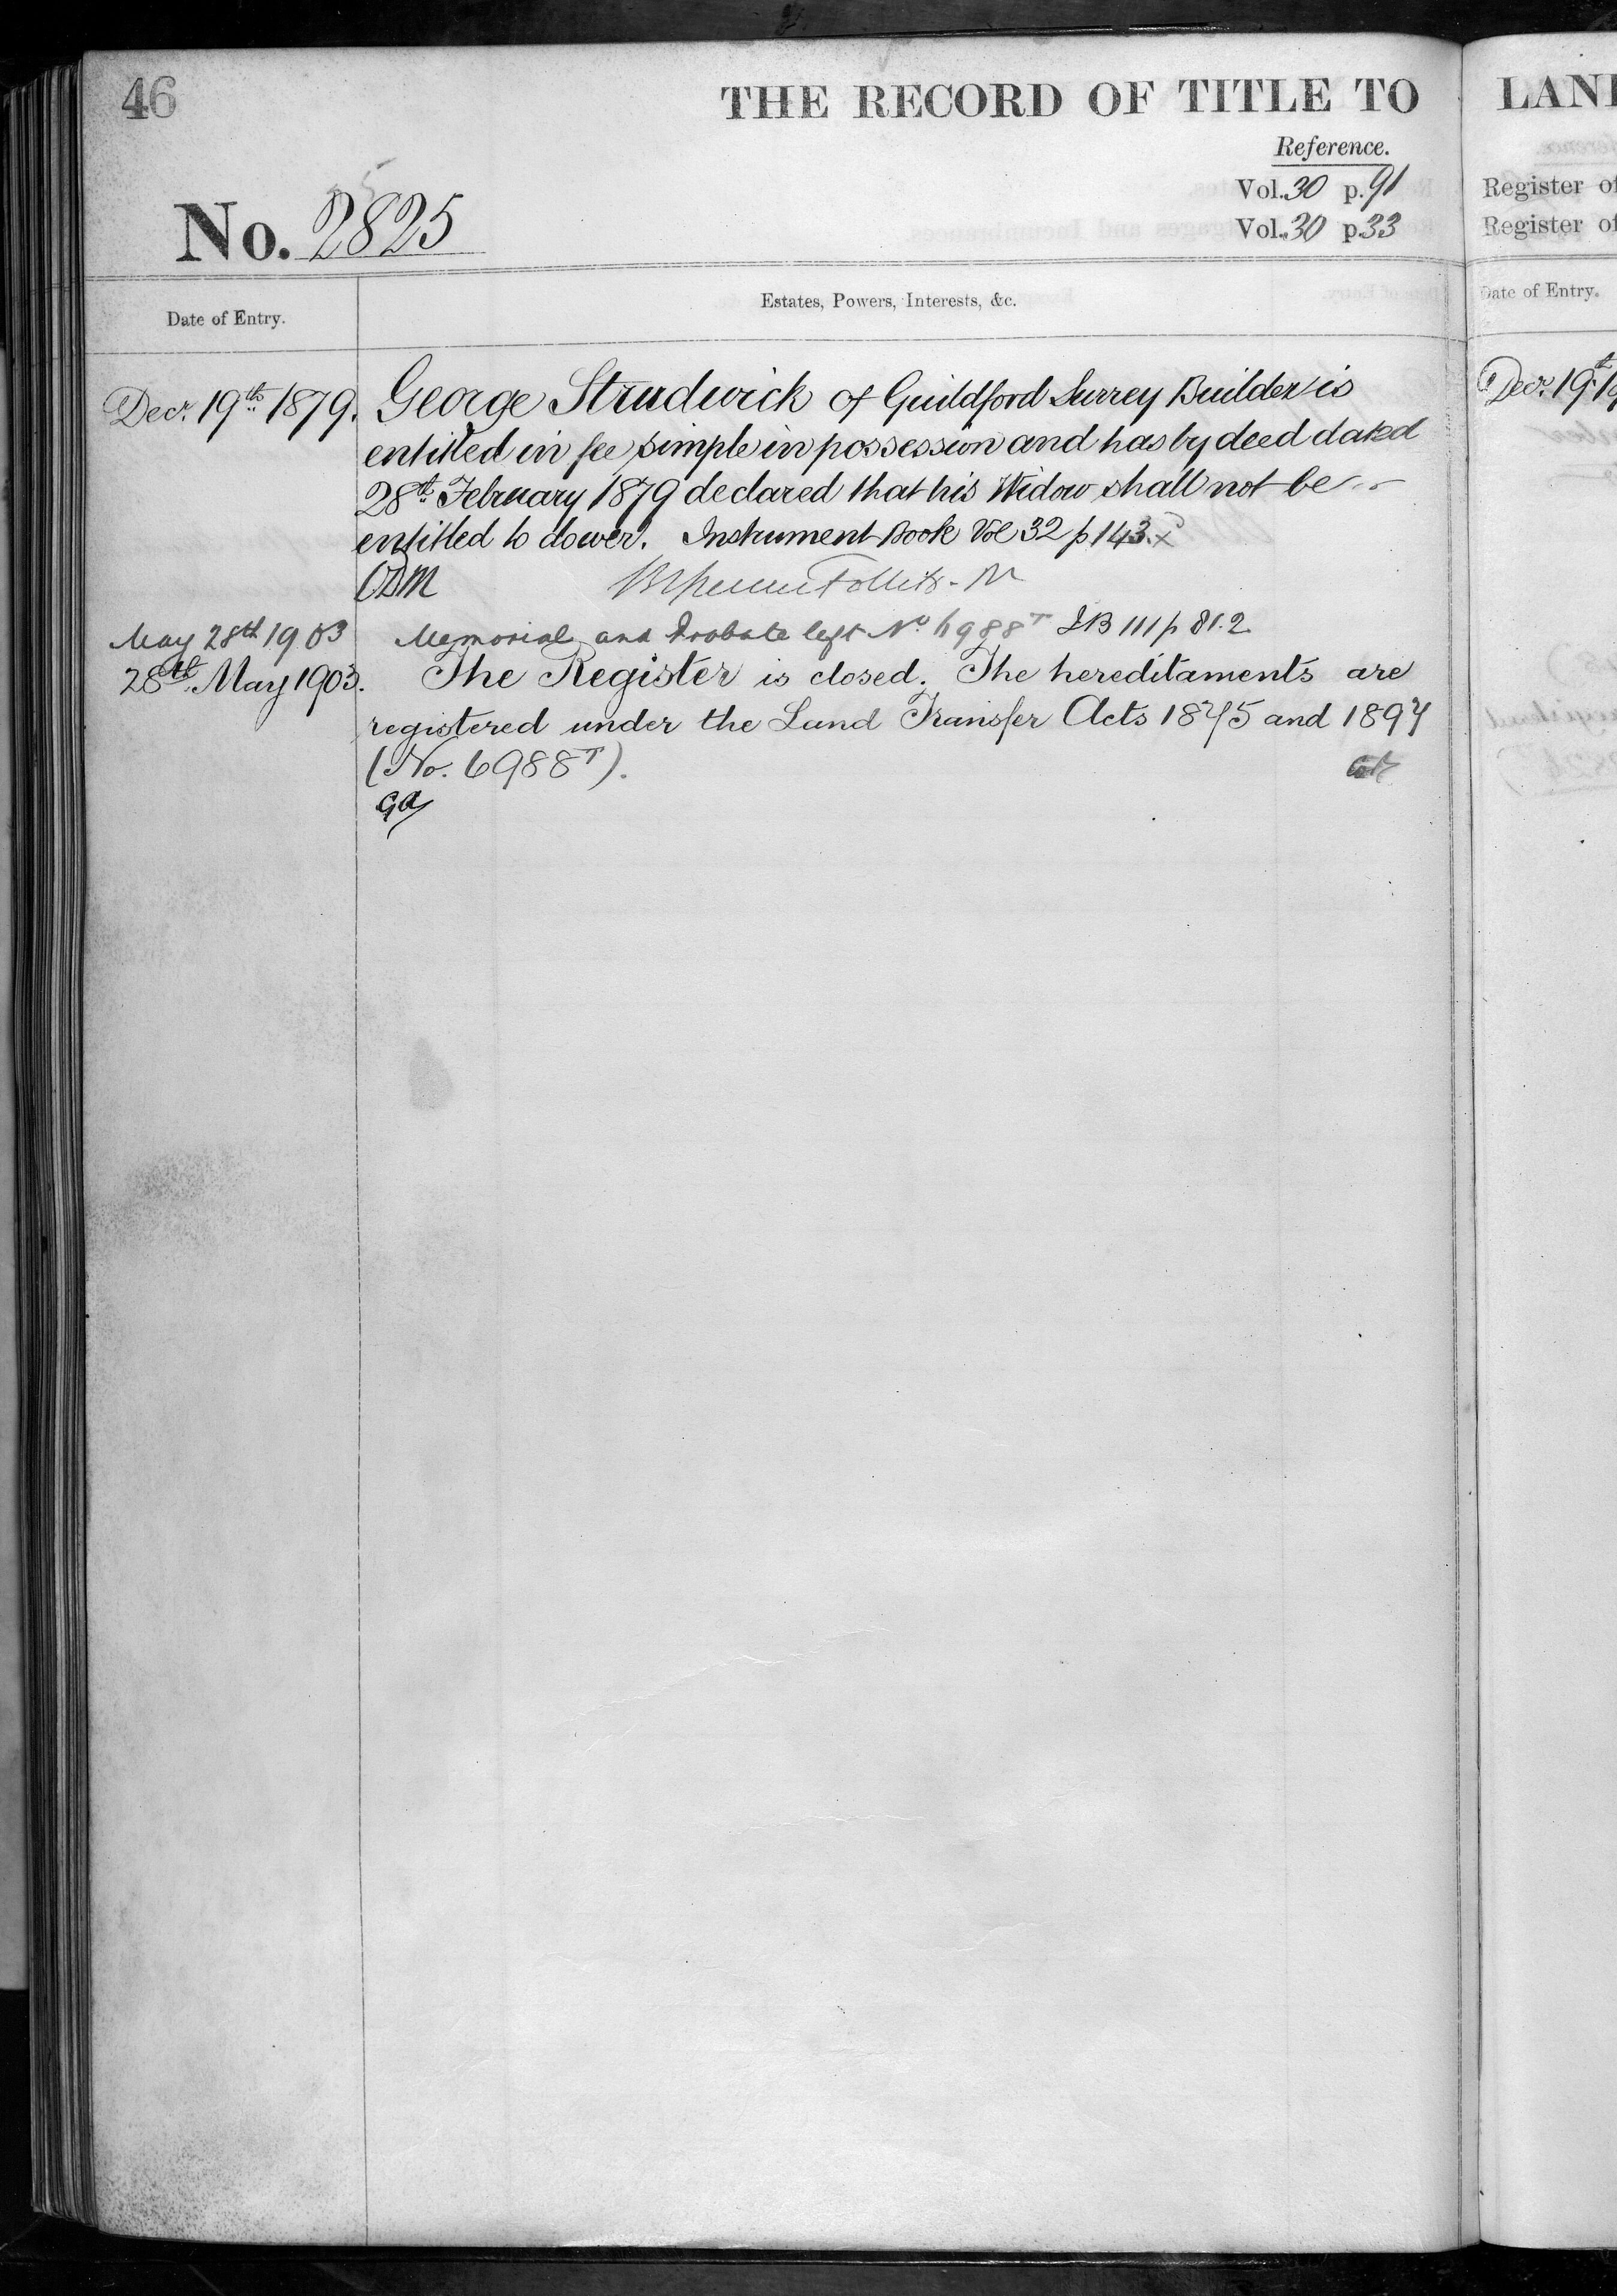 46
THE RECORD OF TITLE TO
Reference.
Vol. 30 p. 91
Vol. 30 p 33
No. 2825
Date of Entry.
Estates, Powers, Interests, &c.
Decr. 19th 1879. George Strudwick of Guildford Surrey Builder is
entitled in fee simple in possession and has by deed dated
28th February 1879 declared that his Widow shall not be
entitled to dower. Instrument Book Vol 32 p 143.
May 28th 1903 Memorial and Probate left No 6988T IB 111 p 81.2
28th May 1903. The Register is closed. The hereditaments are
registered under the Land Transfer Acts 1875 and 1897
(No. 6988T).
LAN
Register of
Register of
Date of Entry.
Decr. 19th